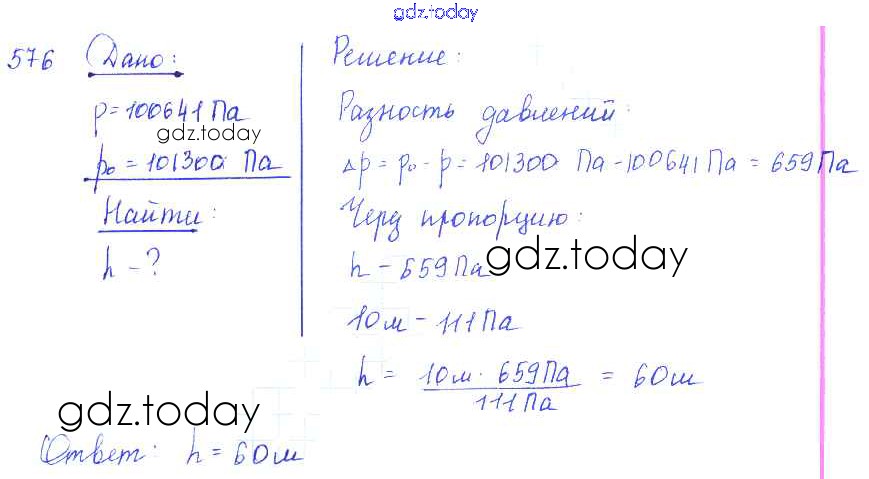 gdz.today
576 Дано:
p = 100641 Па
gdz.today
p₀ = 101300 Па
Найти:
h - ?
Решение:
Разность давлений:
Δp = p₀ - p = 101300 Па - 100641 Па = 659 Па
Через пропорцию:
h - 659 Па
gdz.today
10 м - 111 Па
h = 10 м · 659 Па / 111 Па = 60 м
gdz.today
Ответ: h = 60 м